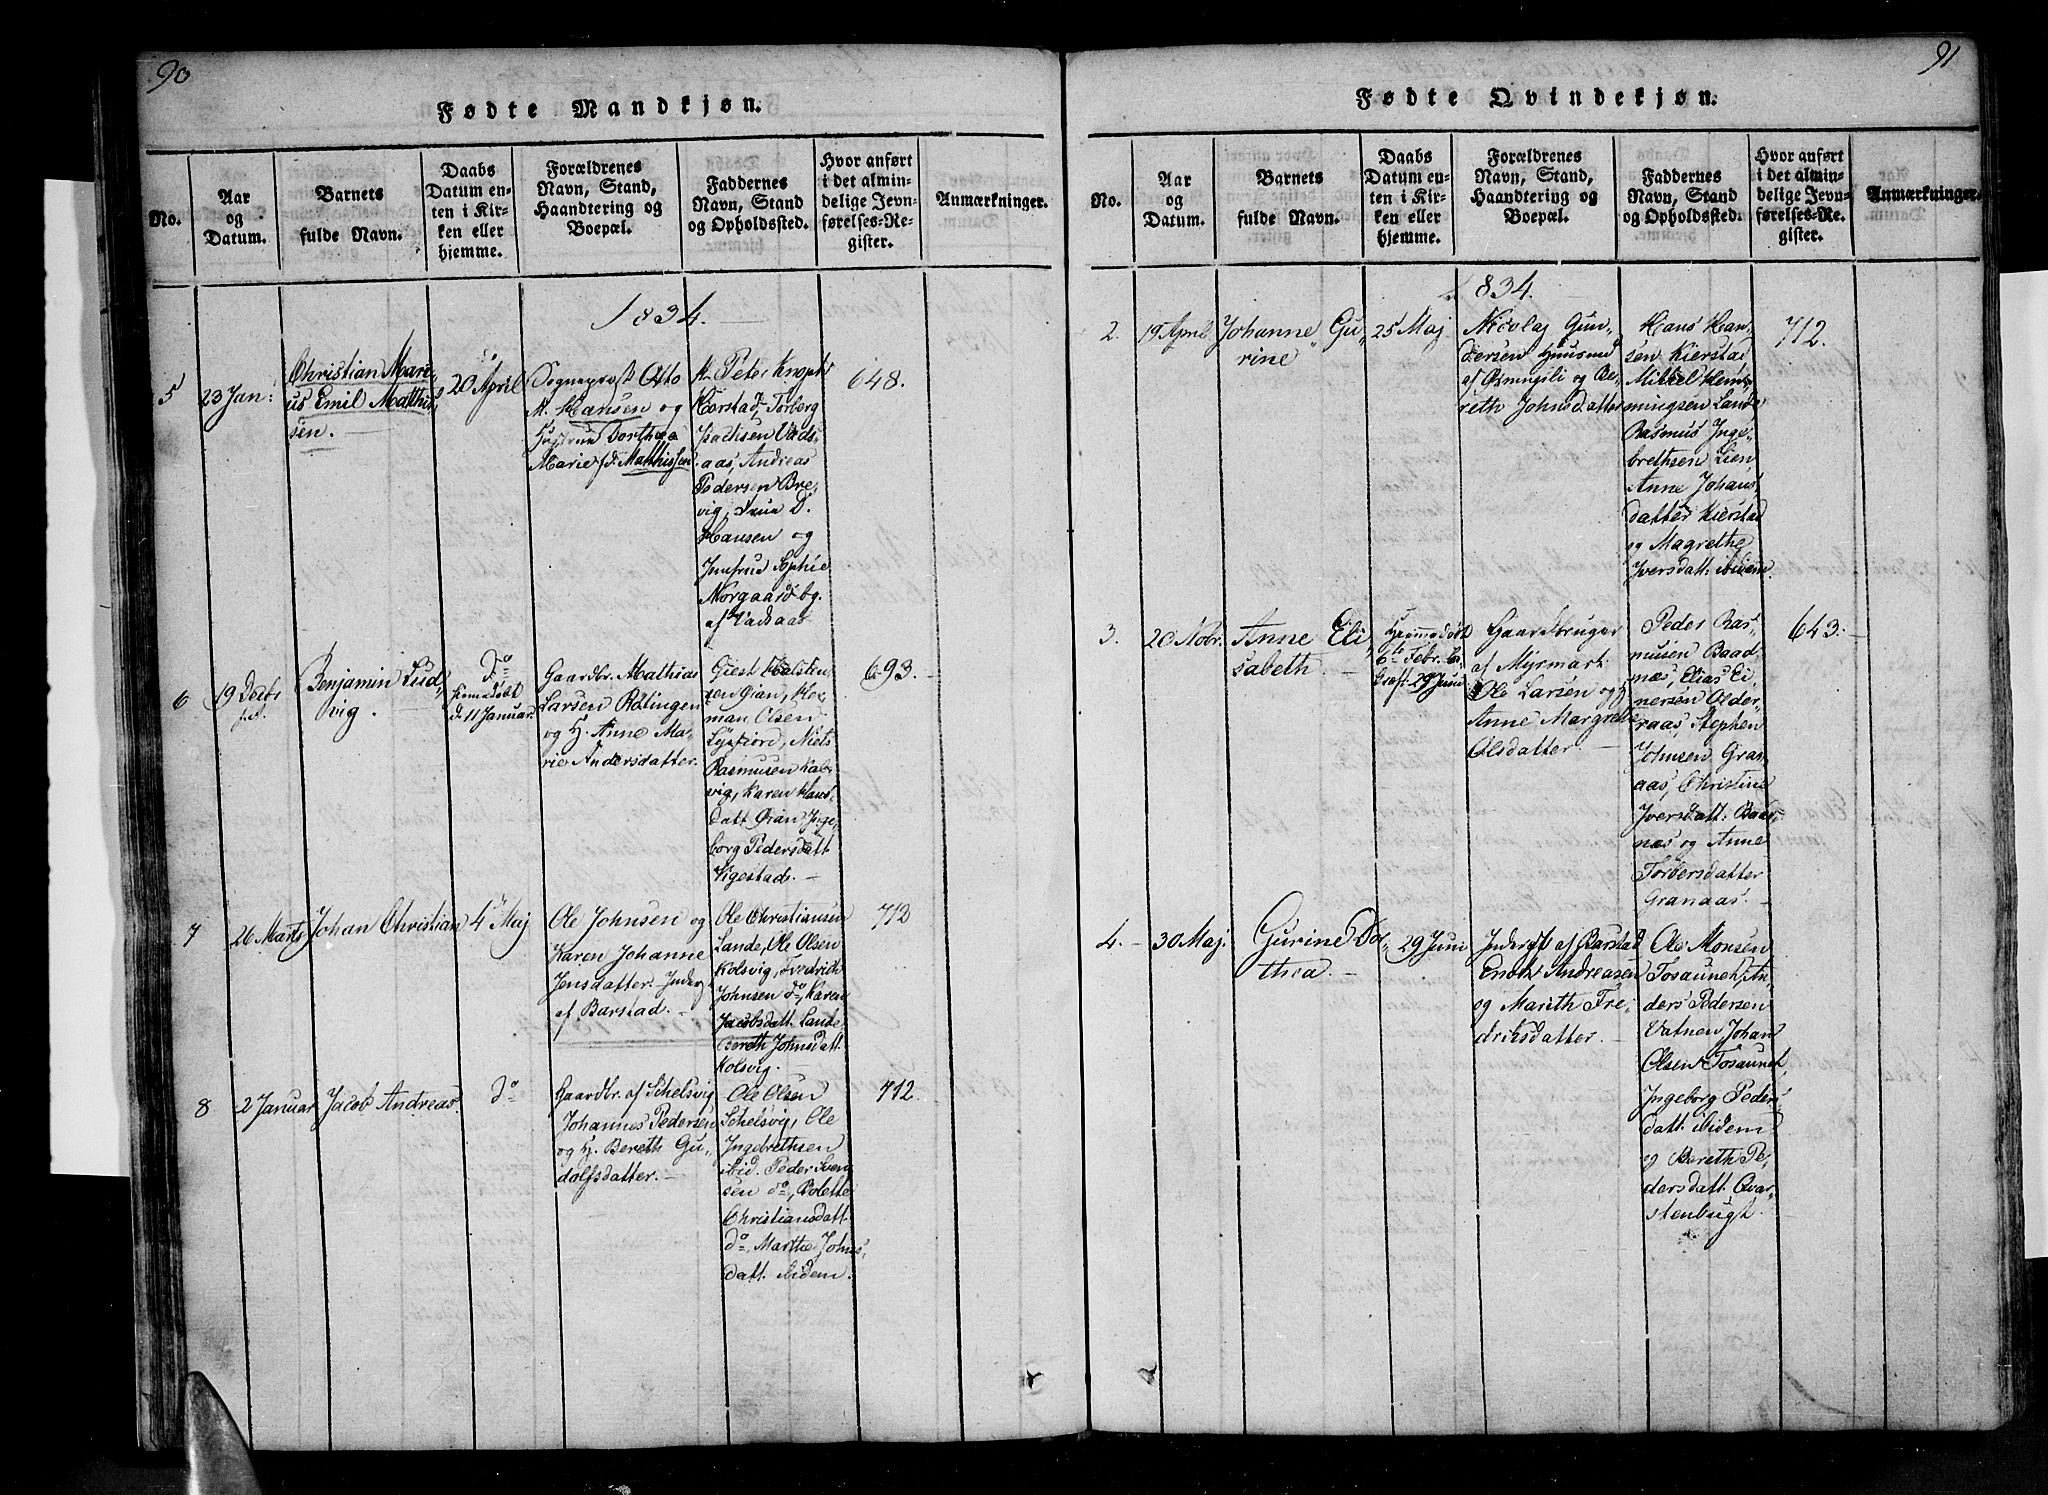 90
Fødte Mandkjøn.
No.
Aar
og
Datum.
Barnets
fulde Navn.
Daabs
Datum en-
ten i Kir-
ken eller
hjemme.
Forældrenes
Navn, Stand,
Haandtering og
Boepæl.
Faddernes
Navn, Stand
og Opholdssted.
Hvor anført
i det almin-
delige Jevn-
førelses-Re-
gister.
Anmærkninger.
1834.
5
23 Jan:
Christian Mari-
us Emil Matthis-
sen.
20 April
Sogneprest Otto
M. Hansen og
Hustrue Dorthea
Marie f. Matthissen
Hr. Peter Knoph
Horstad, Torberg
Isachsen Vads-
aas, Andreas
Pedersen Bre-
vig, Frue D.
Hansen og
Jomfrue Sophie
Norgaard bg.
af Vadsaas
648.
6
19 Decbr
Benjamin Lud-
vig.
do
hjemedøbt
d. 11 Januar.
Gaardbr. Mathias
Larsen Røtingen
og H. Anne Ma-
rie Andersdatter.
Giest Holsten-
sen Øian, Her-
man Olsen
Lysfiord, Niels
Rasmusen Kals-
vig, Karen Hans-
datt. Øian, Inge-
borg Pedersdatt.
Vigestad.
693.
7
26 Marts
Johan Christian
4 Maj
Ole Johnsen og
Karen Johanne
Jensdatter. Inderst
af Barstad.
Ole Christiansen
Lande, Ole Olsen
Kolsvig, Fredrich
Johnsen do, Karen
Jacobsdatt. Lande
Bereth Johnsdatt.
Kolsvig.
712
8
2 Januar
Jacob Andreas.
do
Gaardbr. af Schelsvig
Johannes Pedersen
og H. Bereth Gu-
dolfsdatter.
Ole Olsen
Schelsvig, Ole
Ingebrethsen
ibid. Peder Sven-
sen do, Bolette
Christiansdatt.
do, Marthe Johns-
datt. ibidem.
712.
91
Fødte Qvindekjøn.
No.
Aar
og
Datum.
Barnets
fulde Navn.
Daabs
Datum en-
ten i Kir-
ken eller
hjemme.
Forældrenes
Navn, Stand,
Haandtering og
Boepæl.
Faddernes
Navn, Stand
og Opholdssted.
Hvor anført
i det almin-
delige Jevn-
førelses-Re-
gister.
Anmærkninger.
1834.
2.
19 April
Johanne Gu-
rine
25 Maj
Nicolaj Gun-
dersen Huusmd
af og Be-
reth Johnsdatter
Hans Han-
sen Kierstad
Mikkel Hem-
mingsen Lande
Rasmus Inge-
brethsen Lien,
Anne Johans-
datter Kierstad
og Magrethe
Iversdatt: ibidem.
712.
3.
20 Nobr.
Anne Eli-
sabeth.
Hjemmedøbt
6te Febr.
29 Juni
Gaardbruger
af Myrmark
Ole Larsen og
Anne Margrethe
Olsdatter
Peder Ras-
musen Baad-
næs, Elias Ei-
nersen Older-
raas, Stephen
Johnsen Gran-
aas, Christine
Iversdatt: Baas-
næs og Anne
Torbersdatter
Granaas.
643.
4.
30 Maj.
Gurine Do-
thea
29 Juni
Inderst af Barstad
Enok Andreasen
og Marith Fre-
driksdatter.
Ole Monsen
Tosaunet, An-
ders Pedersen
Vatnen, Johan
Olsen Tosaunet,
Ingeborg Peders-
datt. ibidem
og Bereth Pe-
dersdatt. Qvar-
stenbugt.